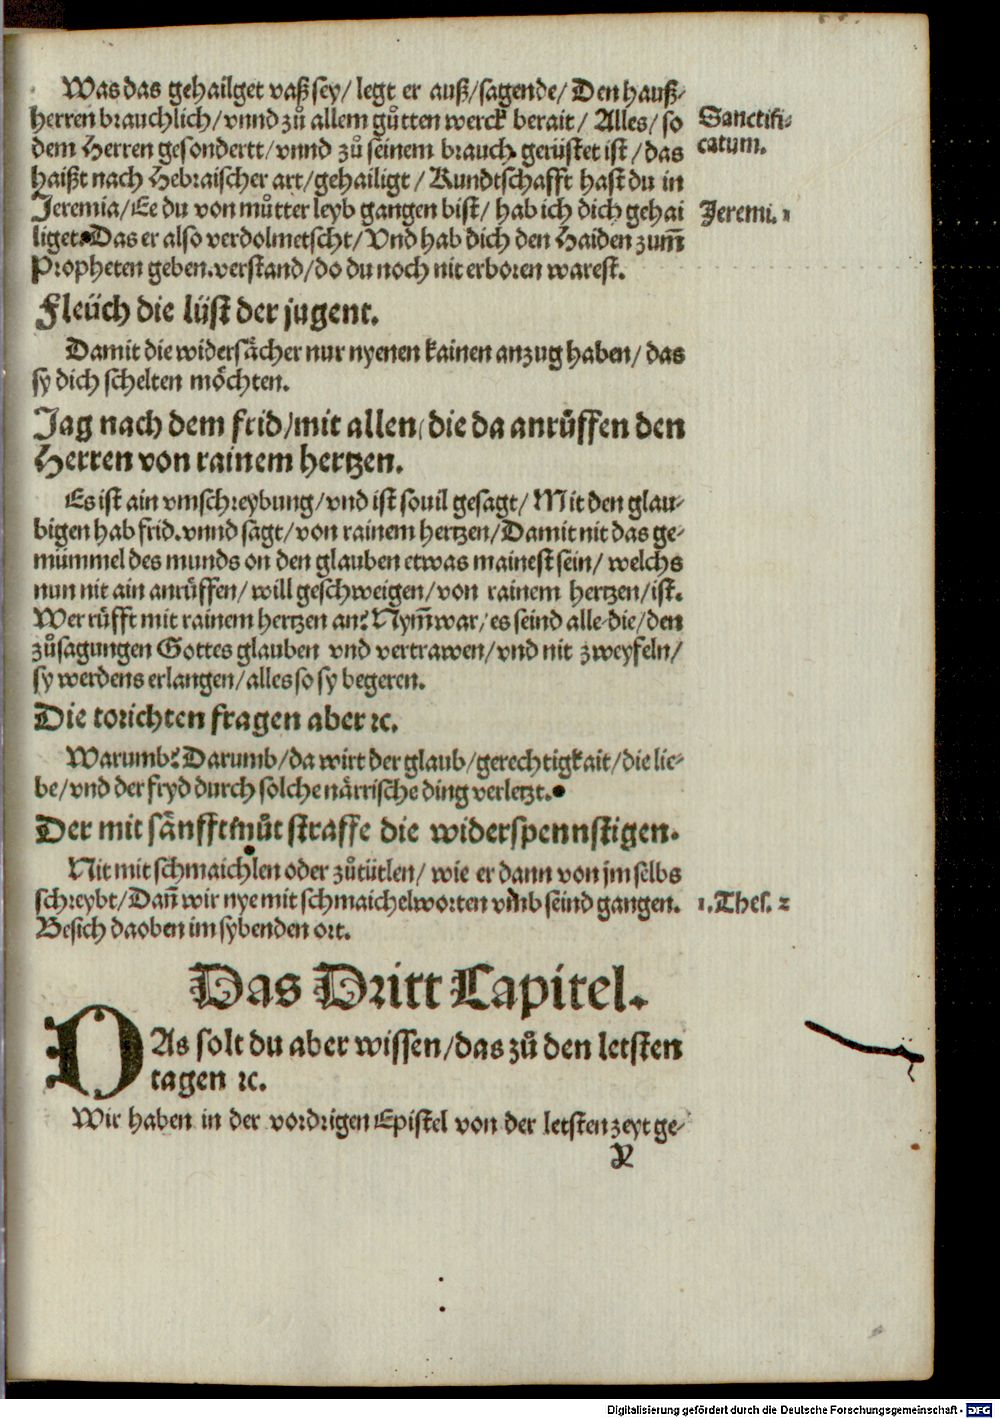 Was das gehailget vaß sey/ legt er auß/ sagende/ Den hauß-
herren brauchlich/ vnnd zů allem gůtten werck berait/ Alles/ so
dem Herren gesondertt/ vnnd zů seinem brauch gerüstet ist/ das
haißt nach Hebraischer art/ gehailigt/ Kundtschafft hast du in
Jeremia/ Ee du von můtter leyb gangen bist/ hab ich dich gehai
liget. Das er also verdolmetscht/ Vnd hab dich den Haiden zum̄
Propheten geben. verstand/ do du noch nit erboren warest.
Sanctifi-
catum.
Jeremi. 1
Fleüch die lüst der jugent.
Damit die widersächer nur nyenen kainen anzug haben/ das
sy dich schelten möchten.
Jag nach dem frid/ mit allen/ die da anrüffen den
Herren von rainem hertzen.
Es ist ain vmschreybung/ vnd ist souil gesagt/ Mit den glau-
bigen hab frid. vnnd sagt/ von rainem hertzen/ Damit nit das ge-
mümmel des munds on den glauben etwas mainest sein/ welchs
nun nit ain anrüffen/ will geschweigen/ von rainem hertzen/ ist.
Wer rüfft mit rainem hertzen an? Nym̄ war/ es seind alle die/ den
zůsagungen Gottes glauben vnd vertrawen/ vnd nit zweyfeln/
sy werdens erlangen/ alles so sy begeren.
Die torichten fragen aber ꝛc.
Warumb? Darumb/ da wirt der glaub/ gerechtigkait/ die lie-
be/ vnd der fryd durch solche närrische ding verletzt.
Der mit sänfftmůt straffe die widerspennstigen.
Nit mit schmaichlen oder zůtütlen/ wie er dann von jm selbs
schreybt/ Dan̄ wir nye mit schmaichelworten vmb seind gangen.
Besich daoben im sybenden ort.
1. Thes. 2
Das Dritt Capitel.
DAs solt du aber wissen/ das zů den letsten
tagen ꝛc.
Wir haben in der vordrigen Epistel von der letsten zeyt ge-
Digitalisierung gefördert durch die Deutsche Forschungsgemeinschaft - DFG